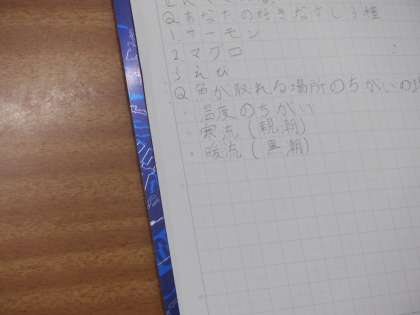 Qあなたの好きなすし3種
1サーモン
2マグロ
3えび
Q魚が取れる場所のちがいの
・温度のちがい
・寒流(親潮)
・暖流(黒潮)